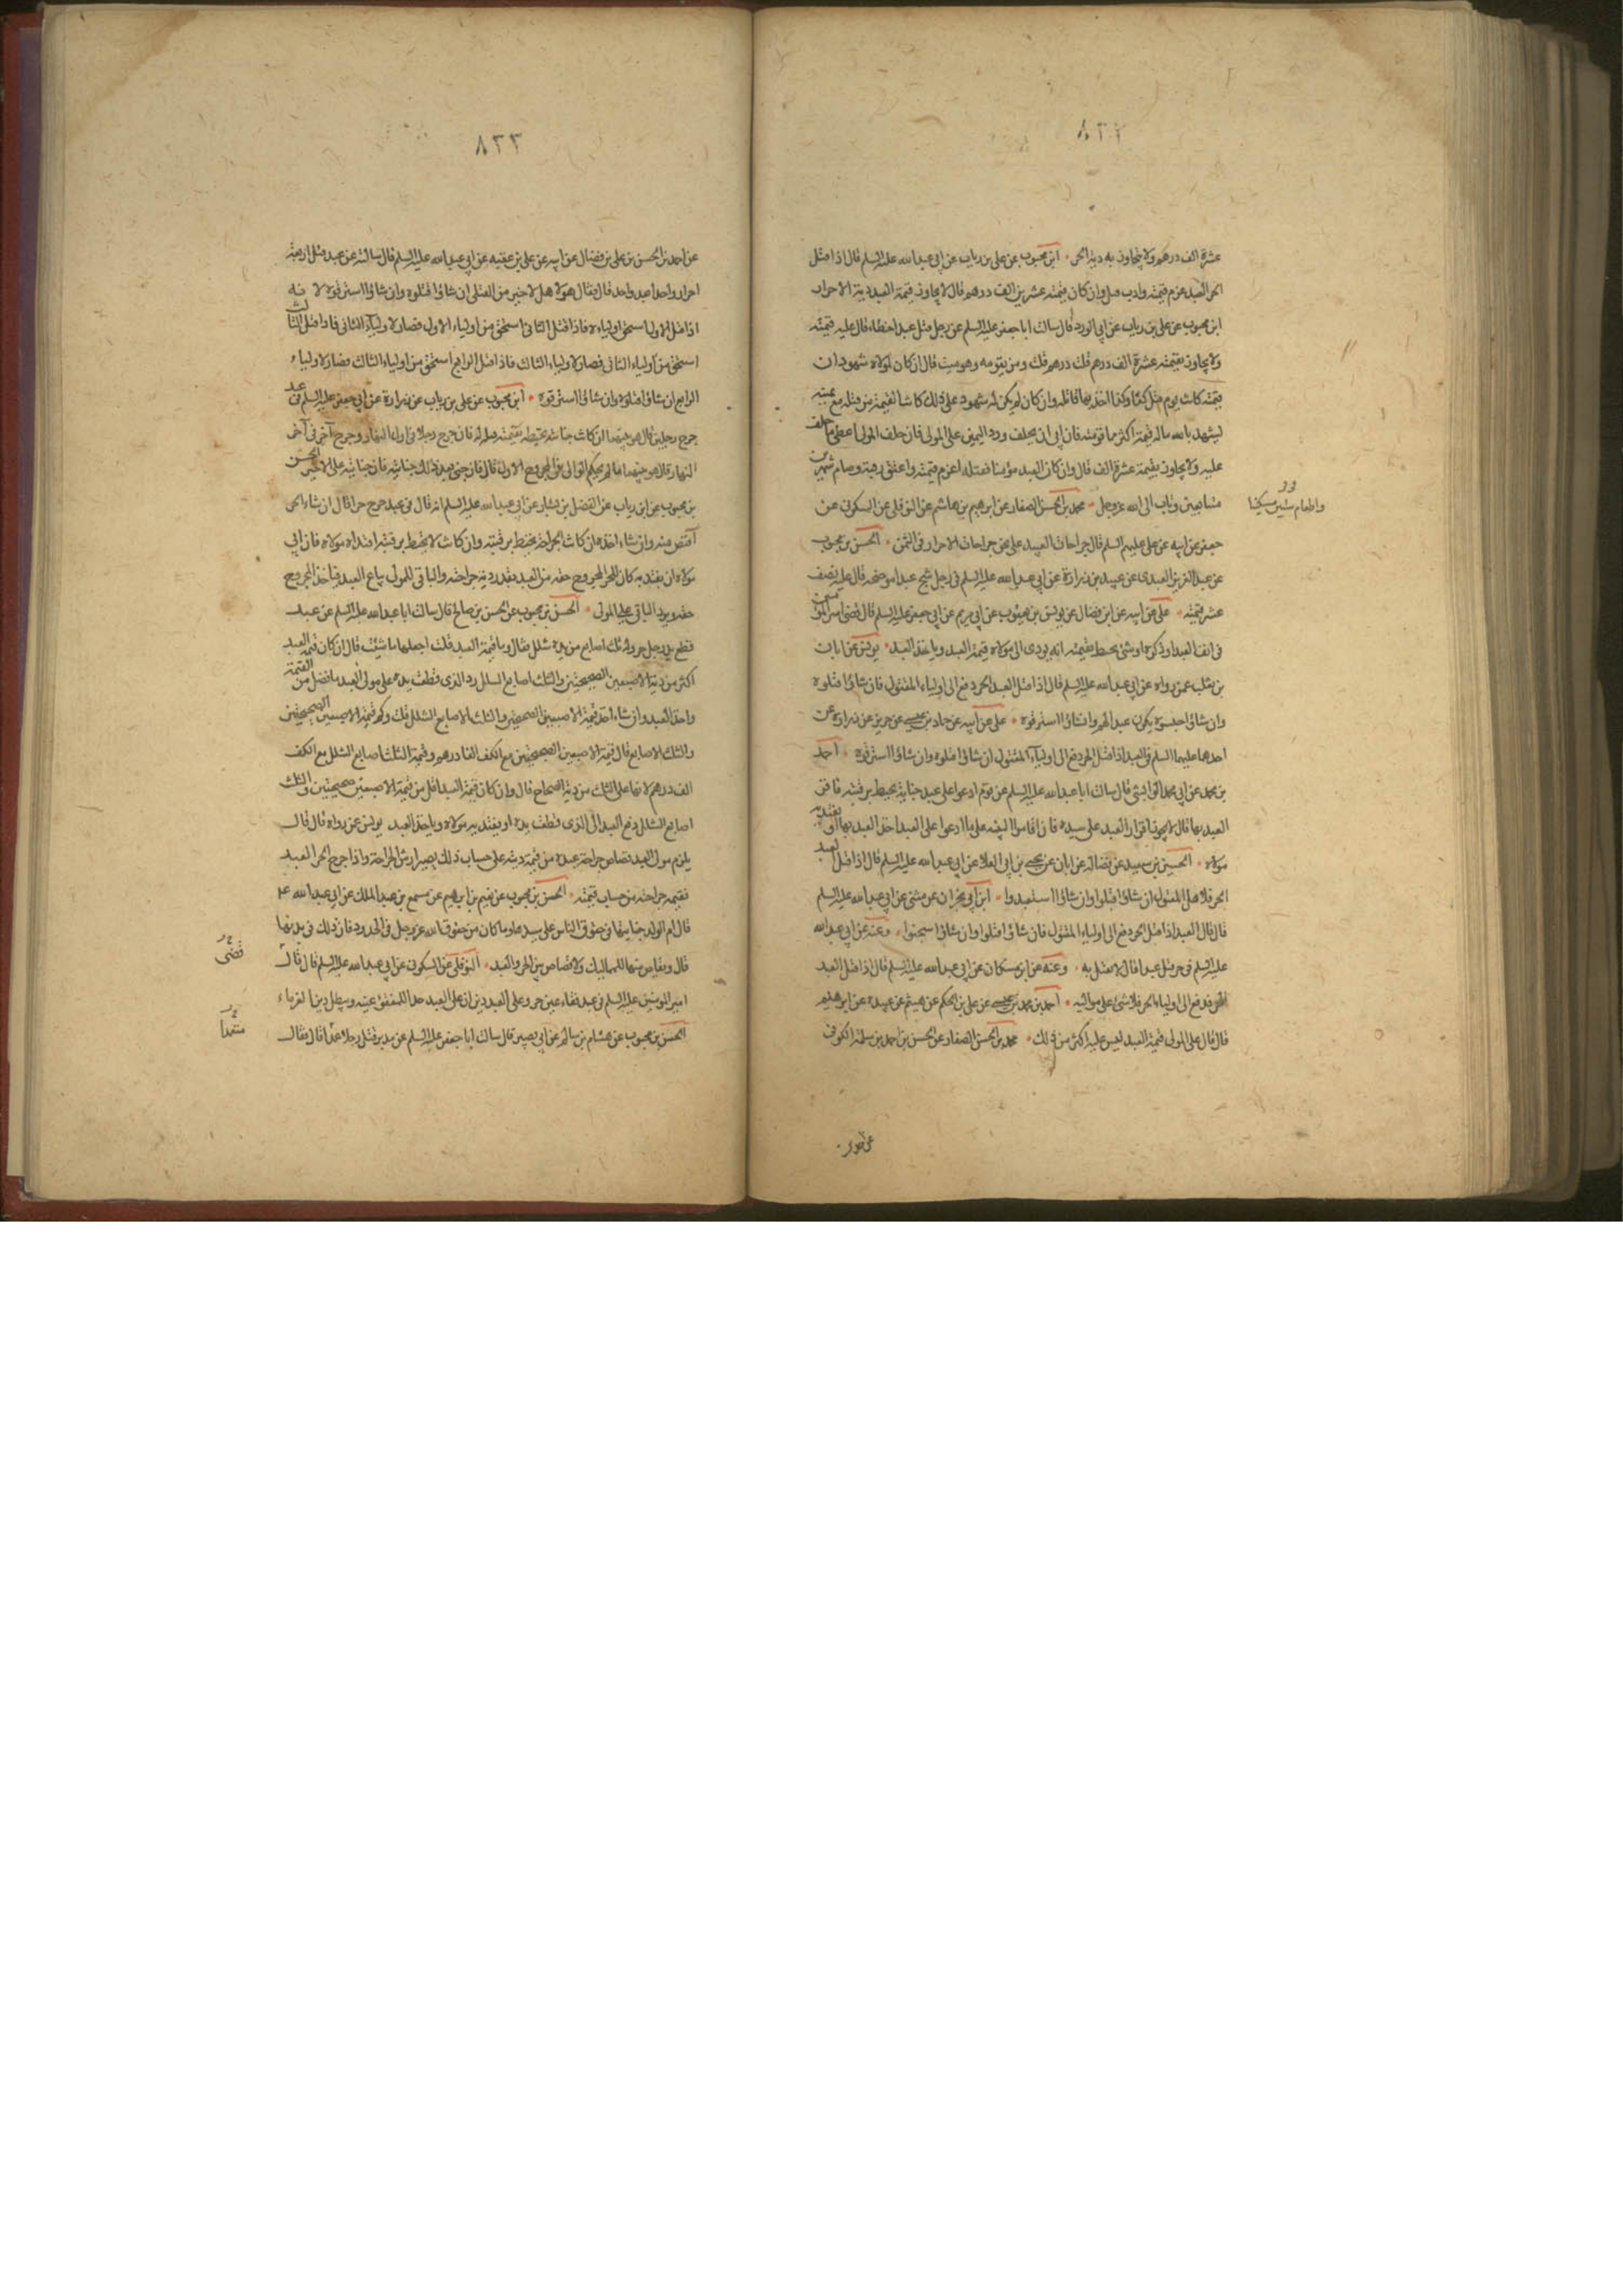 ٨٢٢
عشرة الف درهم ولا يتجاوز به دية الحر ابن محبوب عن علي بن رياب عن ابي عبد الله عليه السلم قال اذا قتل
الحر العبد غرم قيمته وادب قيل وان كان قيمته عشرين الف درهم قال لا يجاوز قيمة العبد دية الاحرار
ابن محبوب عن علي بن رياب عن ابي الورد قال سالت ابا جعفر عليه السلم عن رجل قتل عبدا خطاء قال عليه قيمته
ولا يجاوز بقيمته عشرة الف درهم قلت ومن يقومه وهو ميت قال ان كان لمولاه شهود ان
قيمته كانت يوم قتل كذا وكذا اخذ بها قاتله وان كان لم يكن له شهود على ذلك كانت القيمة من قتله مع يمينه
ليشهد بالله ماله قيمة اكثر مما قومته فان ابى ان يحلف ورد اليمين على المولى فان حلف المولى اعطى ما حلف
عليه ولا يجاوز بقيمته عشرة الف قال وان كان العبد مؤمنا فقتله اغرم قيمته واعتق رقبة وصام شهرين
متتابعين وتاب الى الله عز وجل محمد بن الحسن الصفار عن ابرهيم بن هاشم عن النوفلي عن السكوني عن
واطعام ستين مسكينا
جعفر عن ابيه عن علي عليهم السلم قال جراحات العبيد على نحو جراحات الاحرار في الثمن الحسن بن محبوب
عن عبد العزيز العبدي عن عبيد بن زرارة عن ابي عبد الله عليه السلم في رجل شج عبدا موضحة قال عليه نصف
عشر قيمته علي عن ابيه عن ابن فضال عن يونس بن يعقوب عن ابي مريم عن ابي جعفر عليه السلم قال قضى امير المؤمنين
في انف العبد او ذكره او شئ يحيط بقيمته انه يودى الى مولاه قيمة العبد وياخذ العبد يونس عن ابان
بن تغلب عمن رواه عن ابي عبد الله عليه السلم قال اذا قتل العبد الحر دفع الى اولياء المقتول فان شاؤا قتلوه
وان شاؤا حبسوه يكون عبدا لهم وان شاؤا استرقوه علي عن ابيه عن حماد بن عيسى عن حريز عن زرارة عن
احدهما عليهما السلم في العبد اذا قتل الحر دفع الى اولياء المقتول ان شاؤا قتلوه وان شاؤا استرقوه احمد
بن محمد عن ابي محمد الوابشي قال سالت ابا عبد الله عليه السلم عن قوم ادعوا على عبد جناية يحيط برقبته فاقر
العبد بها قال لا يجوز اقرار العبد على سيده فان اقاموا البينة على ما ادعوا على العبد اخذ العبد بها او يفتديه
مولاه الحسين بن سعيد عن فضالة عن ابان عن يحيى بن ابي العلا عن ابي عبد الله عليه السلم قال اذا قتل العبد
الحر فلاهل المقتول ان شاؤا قتلوا وان شاؤا استعبدوا ابن ابي نجران عن مثنى عن ابي عبد الله عليه السلم
قال قال العبد اذا قتل الحر دفع الى اولياء المقتول فان شاؤا قتلوا وان شاؤا سجنوا وعنه عن ابي عبد الله
عليه السلم في حر قتل عبدا قال لا يقتل به وعنه عن ابن مسكان عن ابي عبد الله عليه السلم قال اذا قتل العبد
الحر فدفع الى اولياء الحر فلا شئ على مواليه احمد بن محمد بن عيسى عن علي بن الحكم عن هيثم عن عبيده عن ابرهيم
قال قال على المولى قيمة العبد ليس عليه اكثر من ذلك محمد بن الحسن الصفار عن الحسن بن احمد بن سلمة الكوفي
٨٢٣
عن احمد بن الحسن بن علي بن فضال عن ابيه عن علي بن عقبة عن ابي عبد الله عليه السلم قال سالته عن عبد قتل اربعة
احرار واحدا بعد واحد قال فقال هو لاهل الاخير من القتلى ان شاؤا قتلوه وان شاؤا استرقوه لانه
اذا قتل الاول استحق اولياءه فاذا قتل الثاني استحق من اولياء الاول فصار لاولياء الثاني فاذا قتل الثالث
استحق من اولياء الثاني فصار لاولياء الثالث فاذا قتل الرابع استحق من اولياء الثالث فصار لاولياء
الرابع ان شاؤا قتلوه وان شاؤا استرقوه ابن محبوب عن علي بن رياب عن زرارة عن ابي جعفر عليه السلم في عبد
جرح رجلين قال هو بينهما ان كانت جنايته تحيط بقيمته قيل له فان جرح رجلا في اول النهار وجرح آخر في آخر
النهار قال هو بينهما ما لم يحكم الوالي في المجروح الاول قال فان جنى بعد ذلك جناية فان جنايته على الاخير الحسن
بن محبوب عن ابن رياب عن الفضيل بن يسار عن ابي عبد الله عليه السلم انه قال في عبد جرح حرا قال ان شاء الحر
اقتص منه وان شاء اخذه ان كانت الجراحة تحيط برقبته وان كانت لا تحيط برقبته افتداه مولاه فان ابى
مولاه ان يفتديه كان للحر المجروح حقه من العبد بقدر دية جراحته والباقي للمولى يباع العبد فياخذ المجروح
حقه ويرد الباقي على المولى الحسن بن محبوب عن الحسن بن صالح قال سالت ابا عبد الله عليه السلم عن عبد
قطع يد رجل حر وله ثلث اصابع من يده شلل فقال وما قيمة العبد قلت اجعلها ما شئت قال ان كان قيمة العبد
اكثر من دية الاصبعين الصحيحتين والثلث اصابع الشلل رد الذي قطعت يده على مولى العبد ما فضل من القيمة
واخذ العبد وان شاء اخذ قيمة الاصبعين الصحيحتين والثلث الاصابع الشلل قلت وكم قيمة الاصبعين الصحيحتين
والثلث الاصابع قال قيمة الاصبعين الصحيحتين مع الكف الفا درهم وقيمة الثلث اصابع الشلل مع الكف
الف درهم لانها على الثلث من دية الصحاح قال وان كان قيمة العبد اقل من قيمة الاصبعين صحيحتين والثلث
اصابع الشلل دفع العبد الى الذي قطعت يده او يفتديه مولاه وياخذ العبد يونس عن رواه قال قال
يلزم مولى العبد قصاص جراحة عبده من قيمة ديته على حساب ذلك يصير ارش الجراحة واذا جرح الحر العبد
فقيمة جراحته من حساب قيمته الحسن بن محبوب عن نعيم بن ابرهيم عن مسمع بن عبد الملك عن ابي عبد الله ع
قال ام الولد جنايتها في حقوق الناس على سيدها وما كان من حقوق الله عز وجل في الحدود فان ذلك في بدنها
قال ويقاص منها للمماليك ولا قصاص بين الحر والعبد النوفلي عن السكوني عن ابي عبد الله عليه السلم قال قال
قضى
امير المؤمنين عليه السلم في عبد فقاء عين حر وعلى العبد دين ان على العبد حدا للمفقؤ عينه ويبطل دين الغرماء
الحسن بن محبوب عن هشام بن سالم عن ابي بصير قال سالت ابا جعفر عليه السلم عن مدبر قتل رجلا عمدا قال فقال
متعمدا